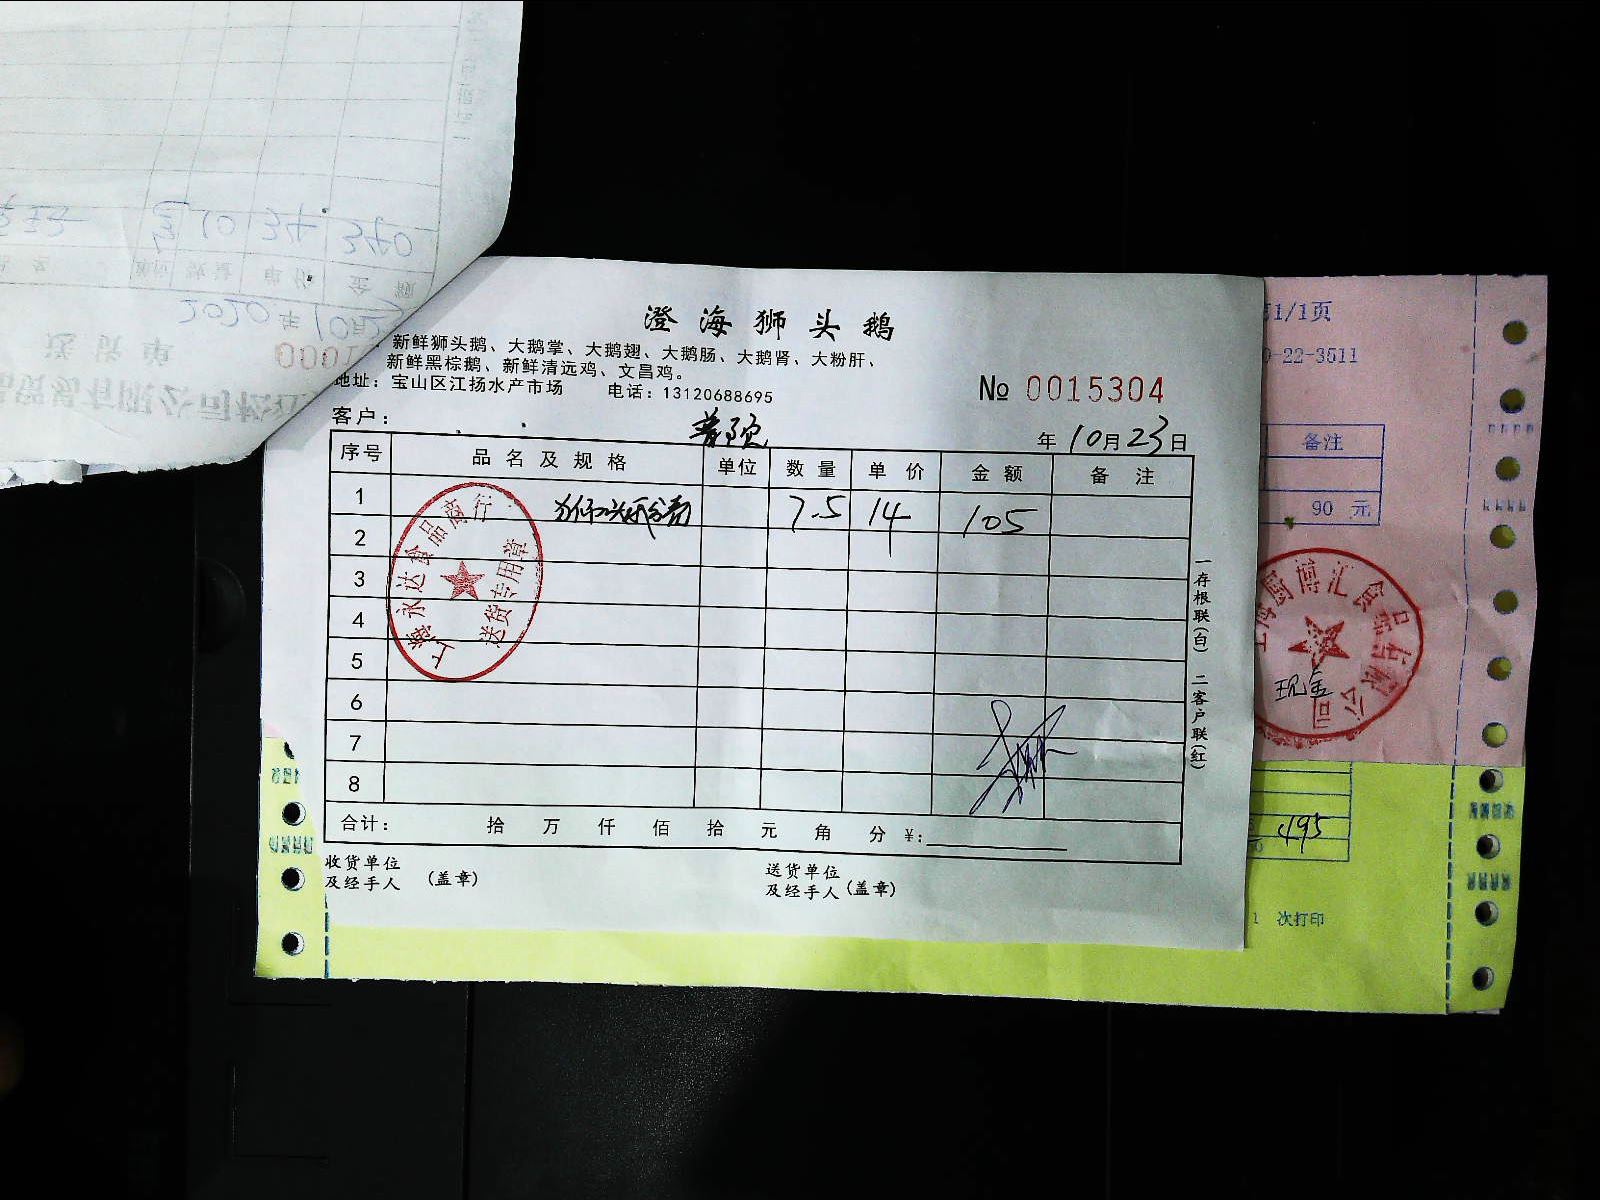 澄海狮头鹅
新鲜狮头鹅、大鹅掌、大鹅翅、大鹅肠、大鹅肾、大粉肝、
新鲜黑棕鹅、新鲜清远鸡、文昌鸡。
地址：宝山区江扬水产市场 电话：13120688695
№ 0015304
客户：
年 10月23日
序号 品名及规格 单位 数量 单价 金额 备注
1 7.5 14 105
2
3
4
5
6
7
8
合计： 拾 万 仟 佰 拾 元 角 分 ¥:
收货单位
及经手人 (盖章)
送货单位
及经手人(盖章)
一存根联(白) 二客户联(红)
上海永达食品商行
送货专用章
1/1页
-22-3511
备注
90 元
上海厨博汇食品有限公司
现金
495
1 次打印
2020年10月
送货单
0001
单价 金额
10 34 340